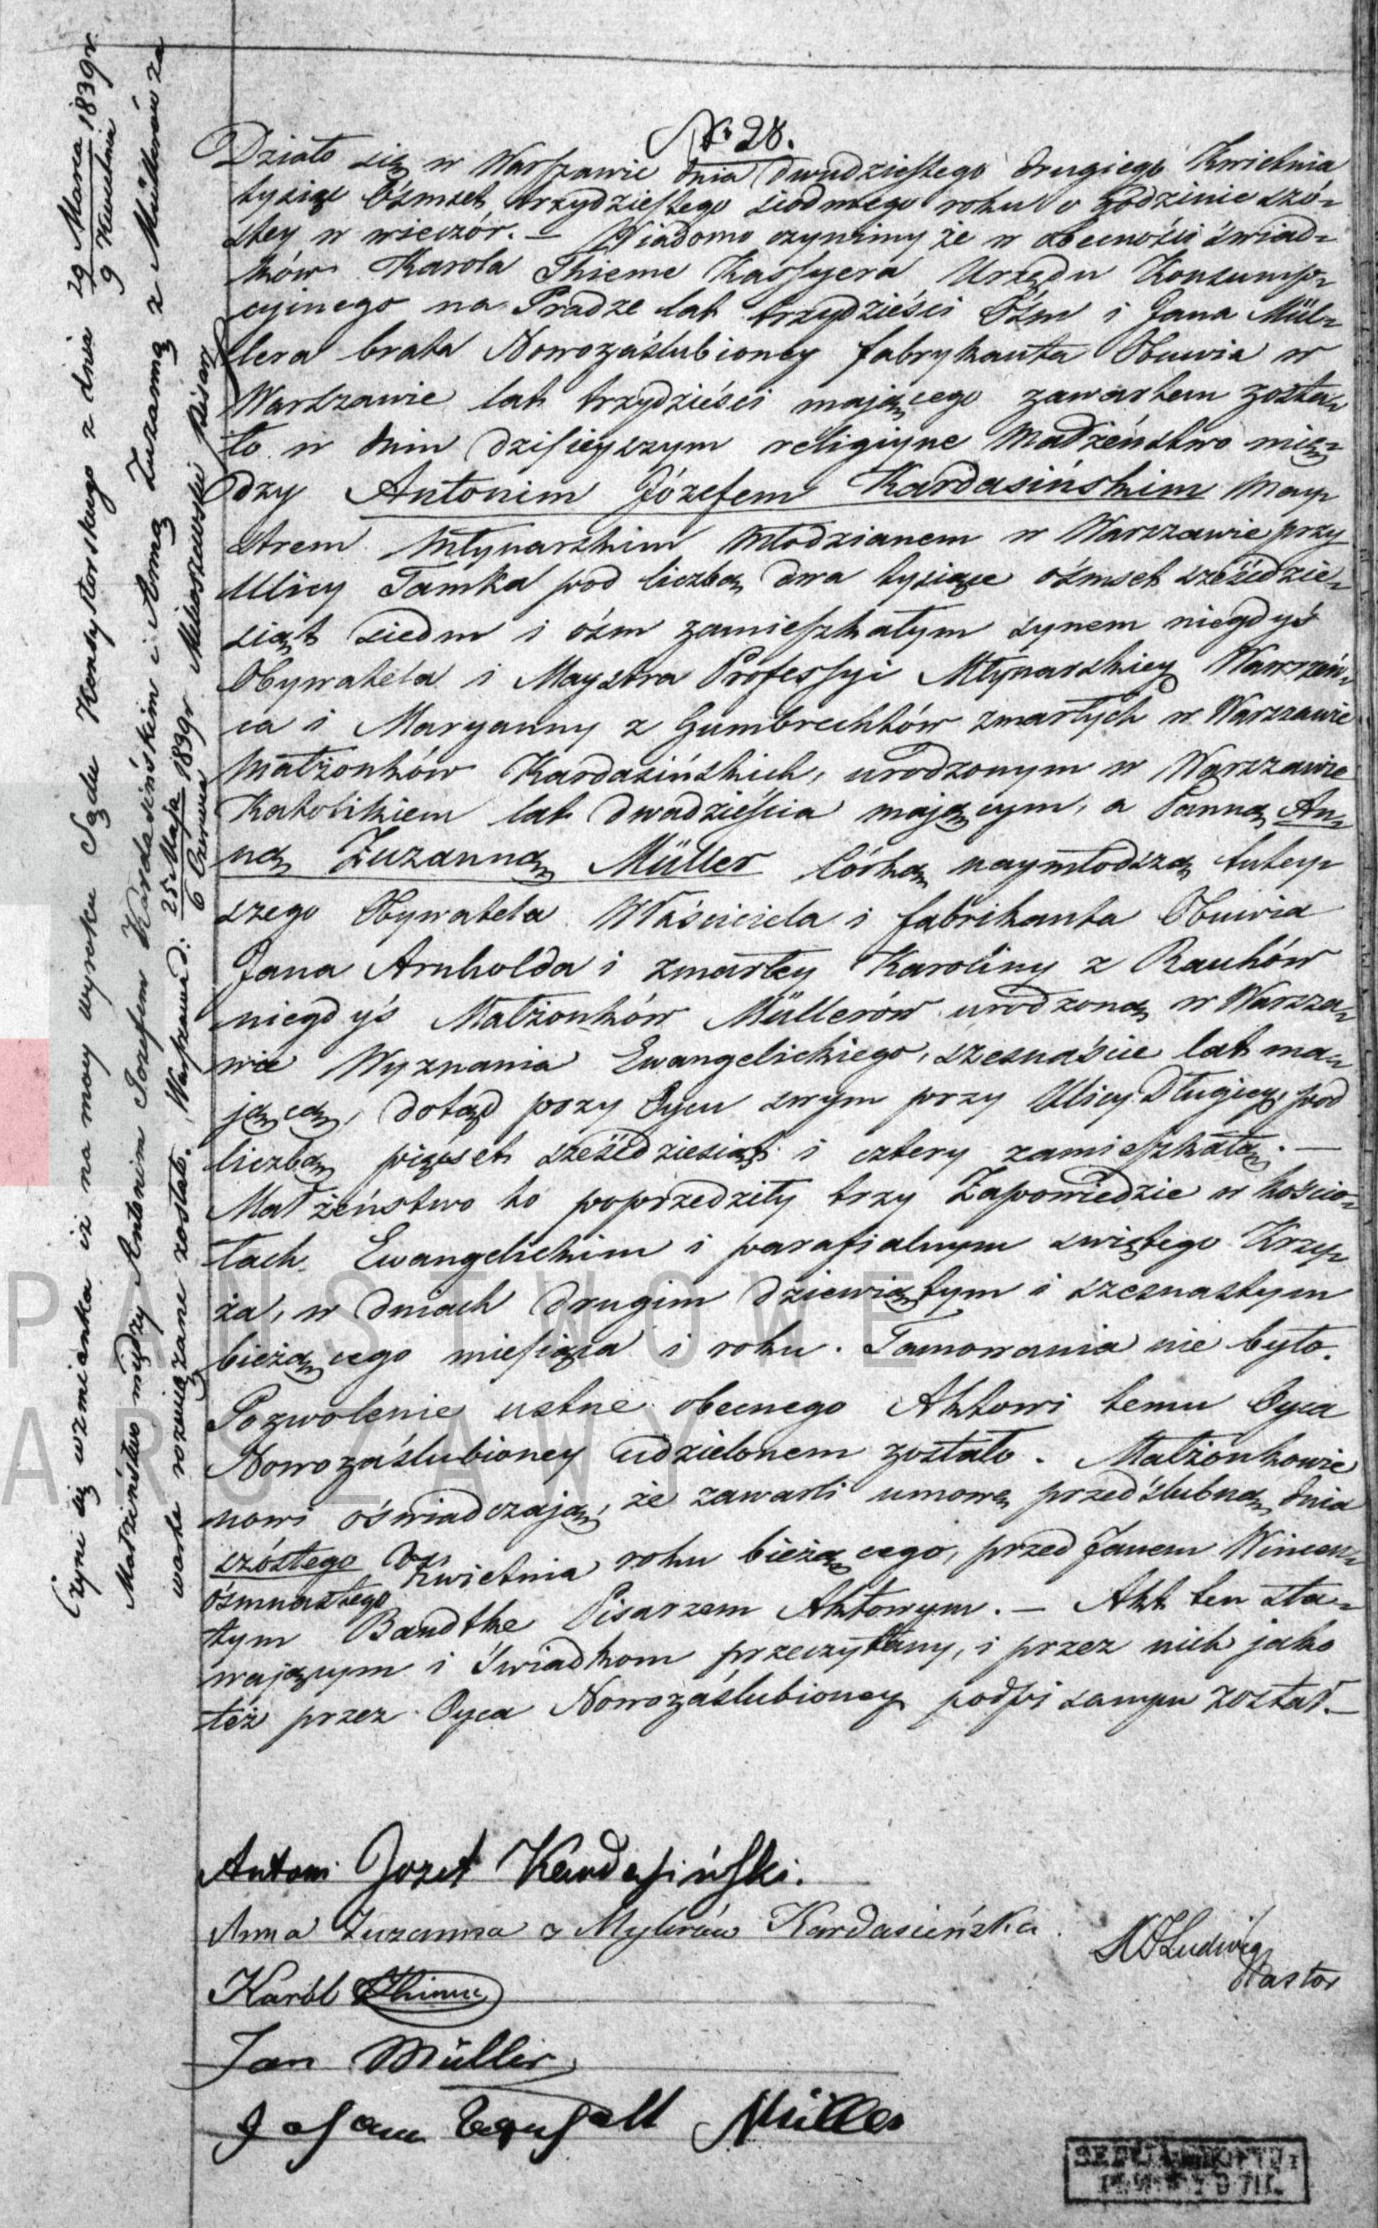 № 28.
Działo się w Warszawie dnia dwudziestego drugiego Kwietnia
tysiąc Ośmset trzydziestego siodmego roku o Godzinie szó-
stey w wieczór. — Wiadomo czynimy że w obecności świad-
ków Karola Thieme Kassyera Urzędu Konsump-
cyinego na Pradze lat trzydzieści Ośm i Jana Mül-
lera brata Nowozaślubioney fabrykanta Obuwia w
Warszawie lat trzydzieści mającego zawartem zosta-
ło w dniu dzisieyszym religiyne Małżeństwo mię-
dzy Antonim Józefem Kardasińskim May-
strem Młynarskim Młodzianem w Warszawie przy
Ulicy Tamka pod liczbą dwa tysiące ośmset sześćdzie-
siąt siedm i ośm zamieszkałym synem niegdyś
Obywatela i Maystra Professyi Młynarskiey Wawrzeń-
ca i Maryanny z Gumbrechtów zmarłych w Warszawie
Małżonków Kardasińskich, urodzonym w Warszawie
Katolikiem lat dwadzieścia mającym, a Panną An-
ną Zuzanną Müller Córką naymłodszą tutey-
szego Obywatela Właściciela i fabrikanta Obuwia
Jana Arnholda i zmarłey Karoliny z Rauhów
niegdyś Małżonków Müllerów urodzoną w Warsza-
wie Wyznania Ewangelickiego, szesnaście lat ma-
jącą, dotąd przy Oycu swym przy Ulicy Długiey pod
liczbą pięćset sześćdziesiąt i cztery zamieszkałą. —
Małżeństwo to poprzedziły trzy Zapowiedzie w kościo-
łach Ewangelickim i parafialnym świętego Krzy-
ża, w dniach drugim dziewiątym i szesnastym
bieżącego miesiąca i roku. Tamowania nie było.
Pozwolenie ustne obecnego Aktowi temu Oyca
Nowozaślubioney udzielonem zostało. Małżonkowie
nowi oświadczają, że zawarli umowę przedślubną dnia
szóstego Kwietnia roku bieżącego, przed Janem Wincen-
ośmnastego
tym Bandtke Pisarzem Aktowym. — Akt ten sta-
wającym i Świadkom przeczytany, i przez nich jako
też przez Oyca Nowozaślubioney podpisanym został. —
Antoni Jozef Kardasiński.
Anna Zuzanna z Mylerów Kardasieńska.
Karól Thieme
Jan Müller
Johann Müller
Ludwig
Pastor
Czyni się wzmianka iż na mocy wyroku Sądu Konsystorskiego z dnia 29 Marca / 9 Kwietnia 1839 r.
Małżeństwo między Antonim Jozefem Kardasińskim i Anną Zuzanną z Müllerów za
warte rozwiązane zostało. Warszawa d: 25 Maja / 6 Czerwca 1839 r Pisarz
PAŃSTWOWE
ARSZAWY